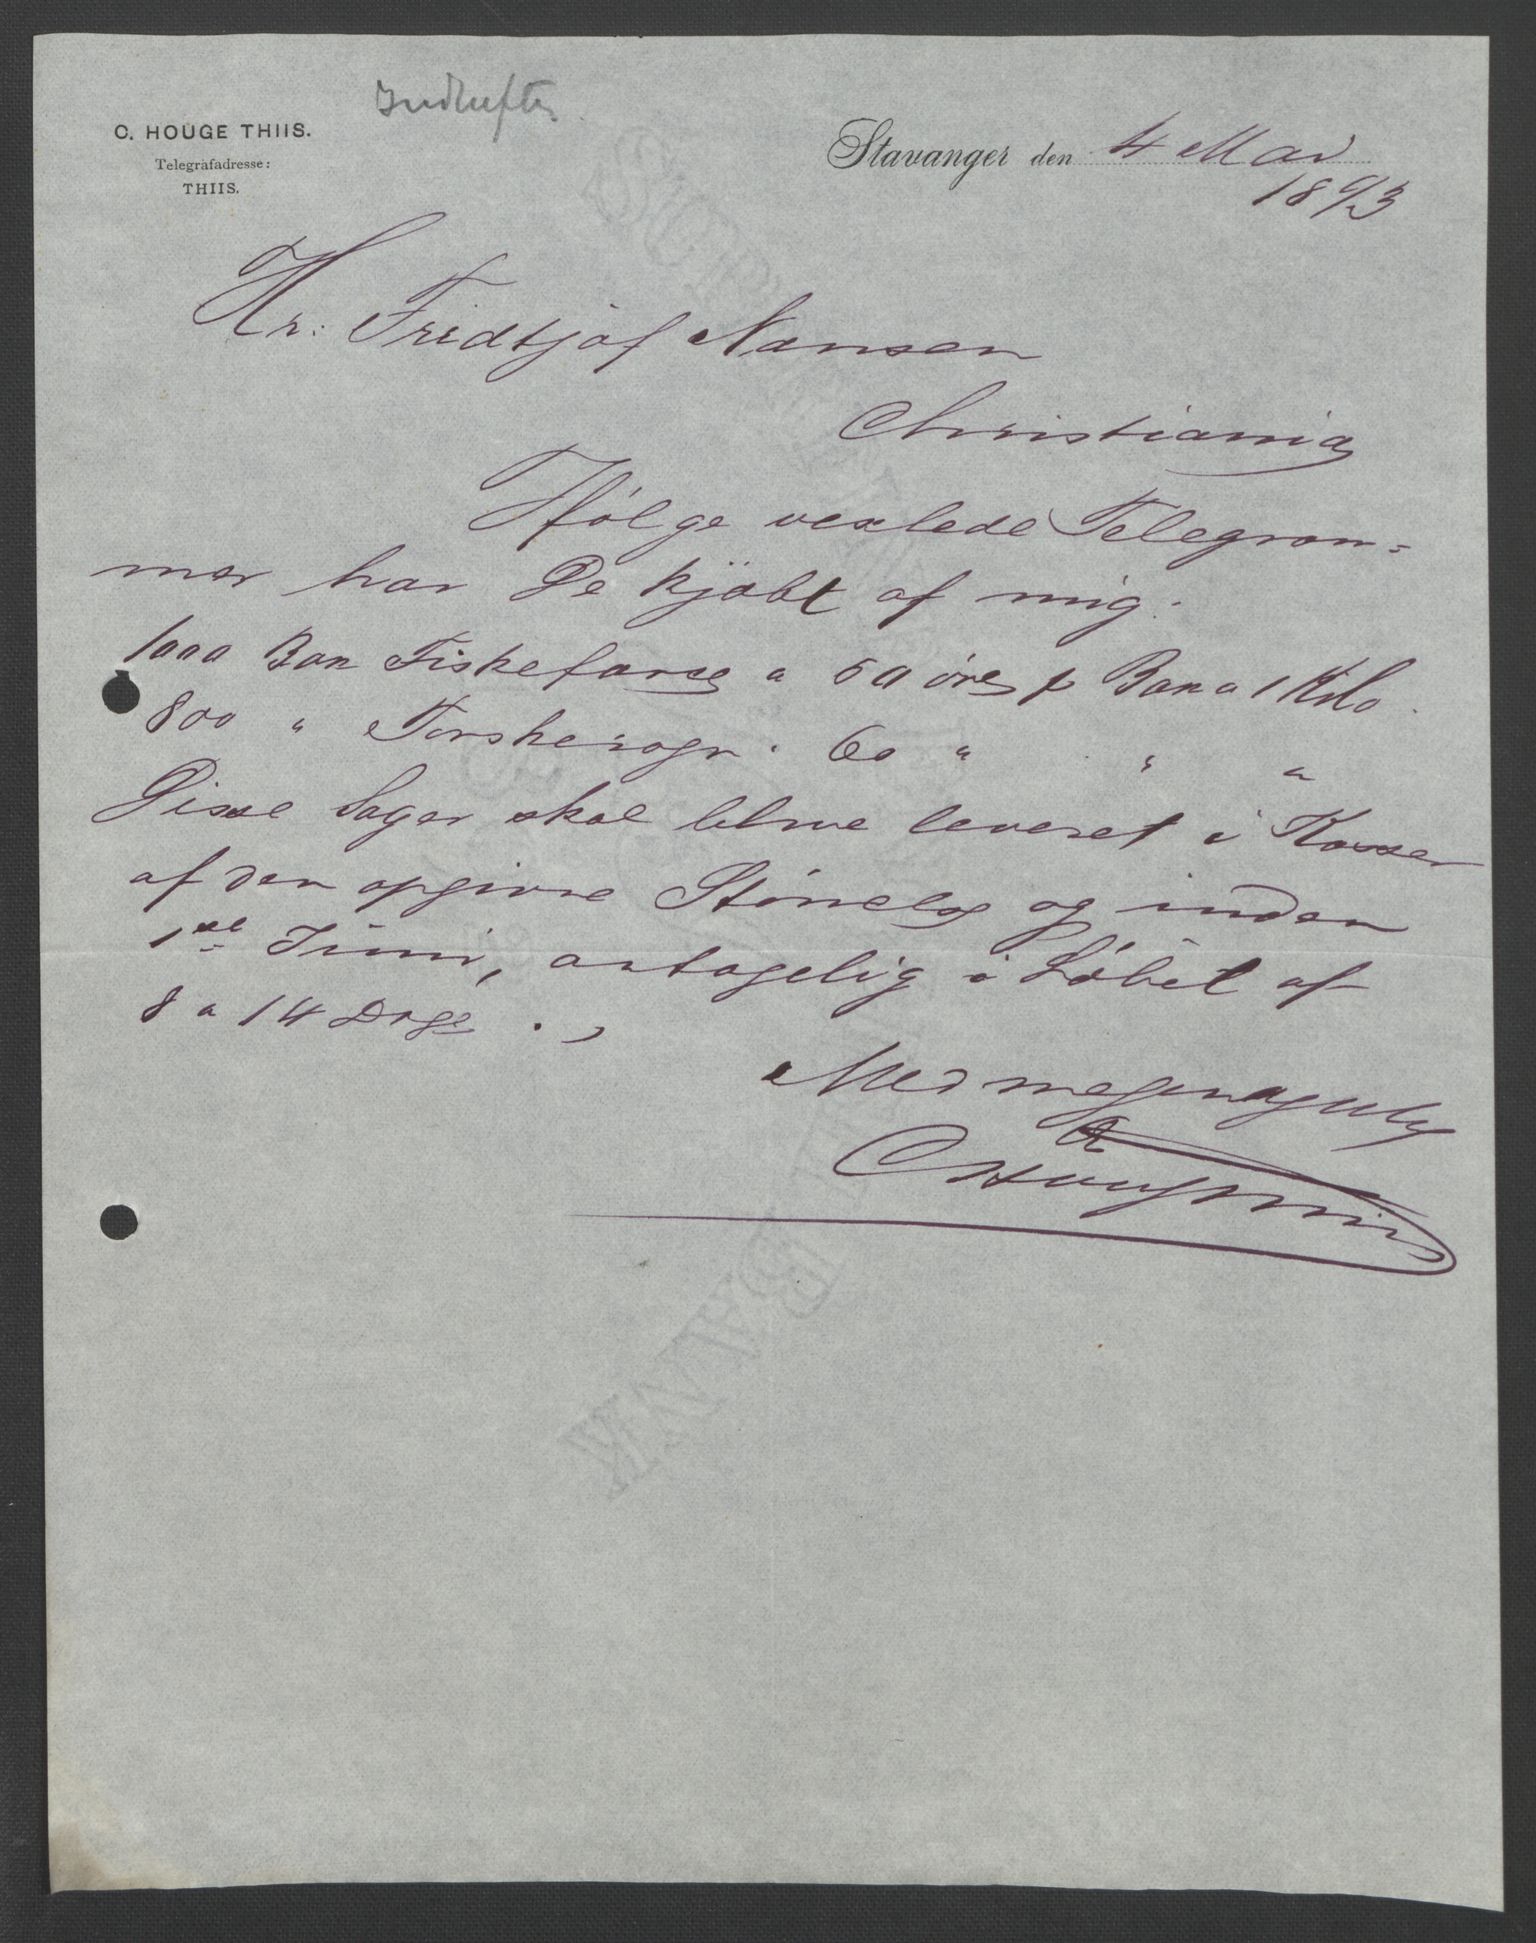 Indheftes
C. HOUGE THIIS.
Telegrafadresse:
THIIS.
Stavanger den 4 Mai
1893
Hr: Fridtjof Nansen
Christiania
Ifølge vexlede Telegram=
mer har De kjøbt af mig:
1000 Box Fiskefarce a 50 øre p Box a 1 Kilo.
800 " Torskerogn " 60 " " "
Disse Sager skal blive leveret i Kasser
af den opgivne Størrelse og inden
1ste Juni, antagelig i Løbet af
8 a 14 Dage.
Med megen agtelse
C Houge Thiis
BANK